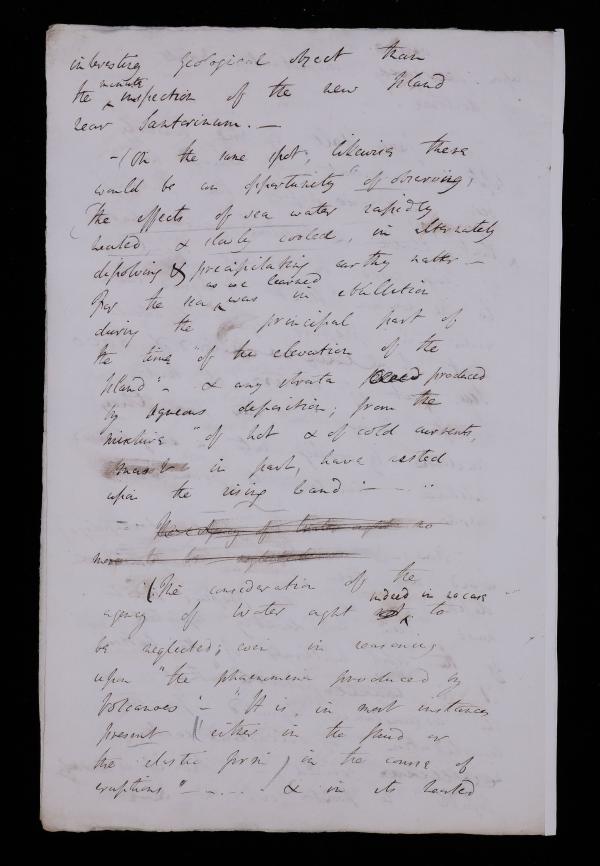 interesting geological object than
the minute inspection of the new Island
near Santorinum. —
—(On the same spot, likewise there
would be an opportunity "of observing,
the effects of sea water rapidly
heated & slowly cooled, in alternately
depositing & precipitating earthy matter —
For the sea as we learned was in ebullition
during the principal part of
the time "of the elevation of the
Island"– & any strata produced
by aqueous deposition; from the
mixture "of hot & of cold currents,
must in part, have rested
upon the rising land — – ..
The agency of water ought no
more to be neglected
(The consideration of the
agency of Water ought indeed in no case to
be neglected; even in reasoning
upon "the phaenomena produced by
Volcanoes"– "It is, in most instances
present (either in the fluid or
the elastic form) in the course of
eruptions"– – . . . & in its heated